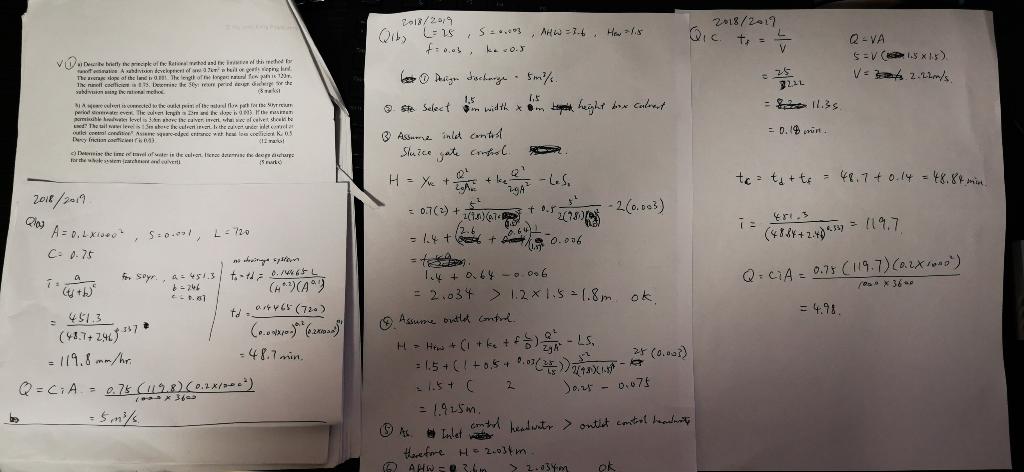 1) a) Describe briefly the principle of the Rational method and the limitation of this method for
runoff estimation. A subdivision development of area 0.2km² is built on gently sloping land.
The average slope of the land is 0.001. The length of the longest natural flow path is 720m.
The runoff coefficient is 0.75. Determine the 50yr return period design discharge for the
subdivision using the rational method. (8 marks)
b) A square culvert is connected to the outlet point of the natural flow path for the 50yr return
period stormwater event. The culvert length is 25m and the slope is 0.003. If the maximum
permissible headwater level is 3.6m above the culvert invert, what size of culvert should be
used? The tail water level is 1.5m above the culvert invert. Is the culvert under inlet control or
outlet control condition? Assume square-edged entrance with head loss coefficient Ke 0.5
Darcy friction coefficient f is 0.03 (12 marks)
c) Determine the time of travel of water in the culvert. Hence determine the design discharge
for the whole system (catchment and culvert). (5 marks)
2018/2019
Q1a) A = 0.2 x 1000² , S = 0.001 , L = 720
C = 0.75
i = a / (td+b)^c for 50yr. a = 451.3
b = 246
= 451.3 / (48.7 + 24
= 119.8 mm/hr.
no drainage system
to = td = 0.14465 L / (H^0.2)(A^0.1)
td = 0.14465 (720) /
= 48.7 min.
Q = CiA = 0.75 (119.8)(0.2x1000²) / 1000 x 3600
= 5 m³/s.
2018/2019
Q1b) L = 25 , S = 0.003 , AHW = 3.6 , Htw = 1.5
f = 0.03 , ke = 0.5
① Design discharge = 5m³/s.
② Select 1.5 m width x 1.5 m height box culvert
③ Assume inlet control
Sluice gate control.
H = Yvc + Q²/2gAvc² + ke Q²/2gA² - LcS.
= 0.7(2) + 5² / 2(9.81) + 0.5 5² / 2(9.81) - 2(0.003)
= 1.4 + - 0.006
1.4 + 0.64 - 0.006
= 2.034 > 1.2 x 1.5 = 1.8m ok.
④ Assume outlet control.
H = Htw + (1 + ke + f L/D) Q²/2gA² - LS.
= 1.5 + (1 + 0.5 + 0.03(25/1.5)) 5²/2(9.81)(1.5)² - 25 (0.003)
= 1.5 + ( 2 )0.25 - 0.075
= 1.925m.
⑤ As. Inlet control headwater > outlet control headwater
therefore H = 2.034m.
⑥ AHW = 3.6m > 2.034m ok
2018/2019
Q1c. tf = L/V Q = VA
= 25/2.22 5 = V (1.5 x 1.5)
V = 2.22m/s.
= 11.3s.
= 0.18 min.
tc = td + tf = 48.7 + 0.14 = 48.84 min.
i = 451.3 / = 119.7
Q = CiA = 0.75 (119.7)(0.2x1000²) / 1000 x 3600
= 4.98.